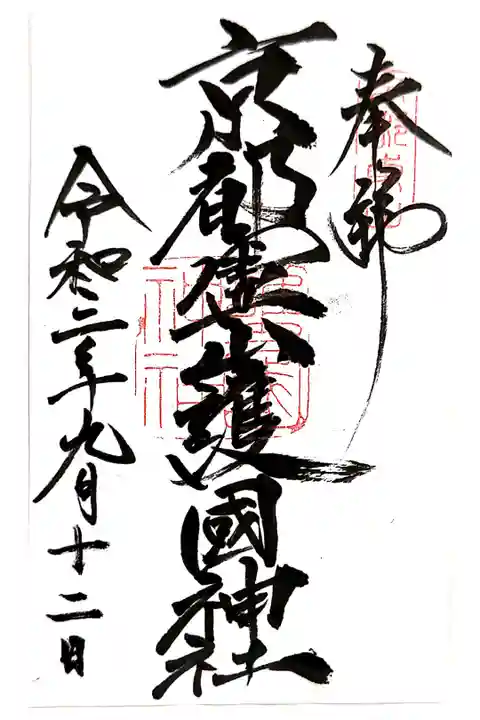 奉拝
京都霊山護國神社
令和二年九月十二日